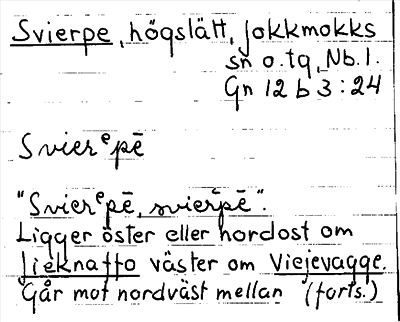 Svierpe, högslätt, Jokkmokks
sn o. tg, Nb. l.
Gn 12 b 3 : 24
Svierᵉpē
"Svierᵉpē, svierᵉpē".
Ligger öster eller nordost om
Jieknaffo väster om Viejevagge.
Går mot nordväst mellan (forts.)